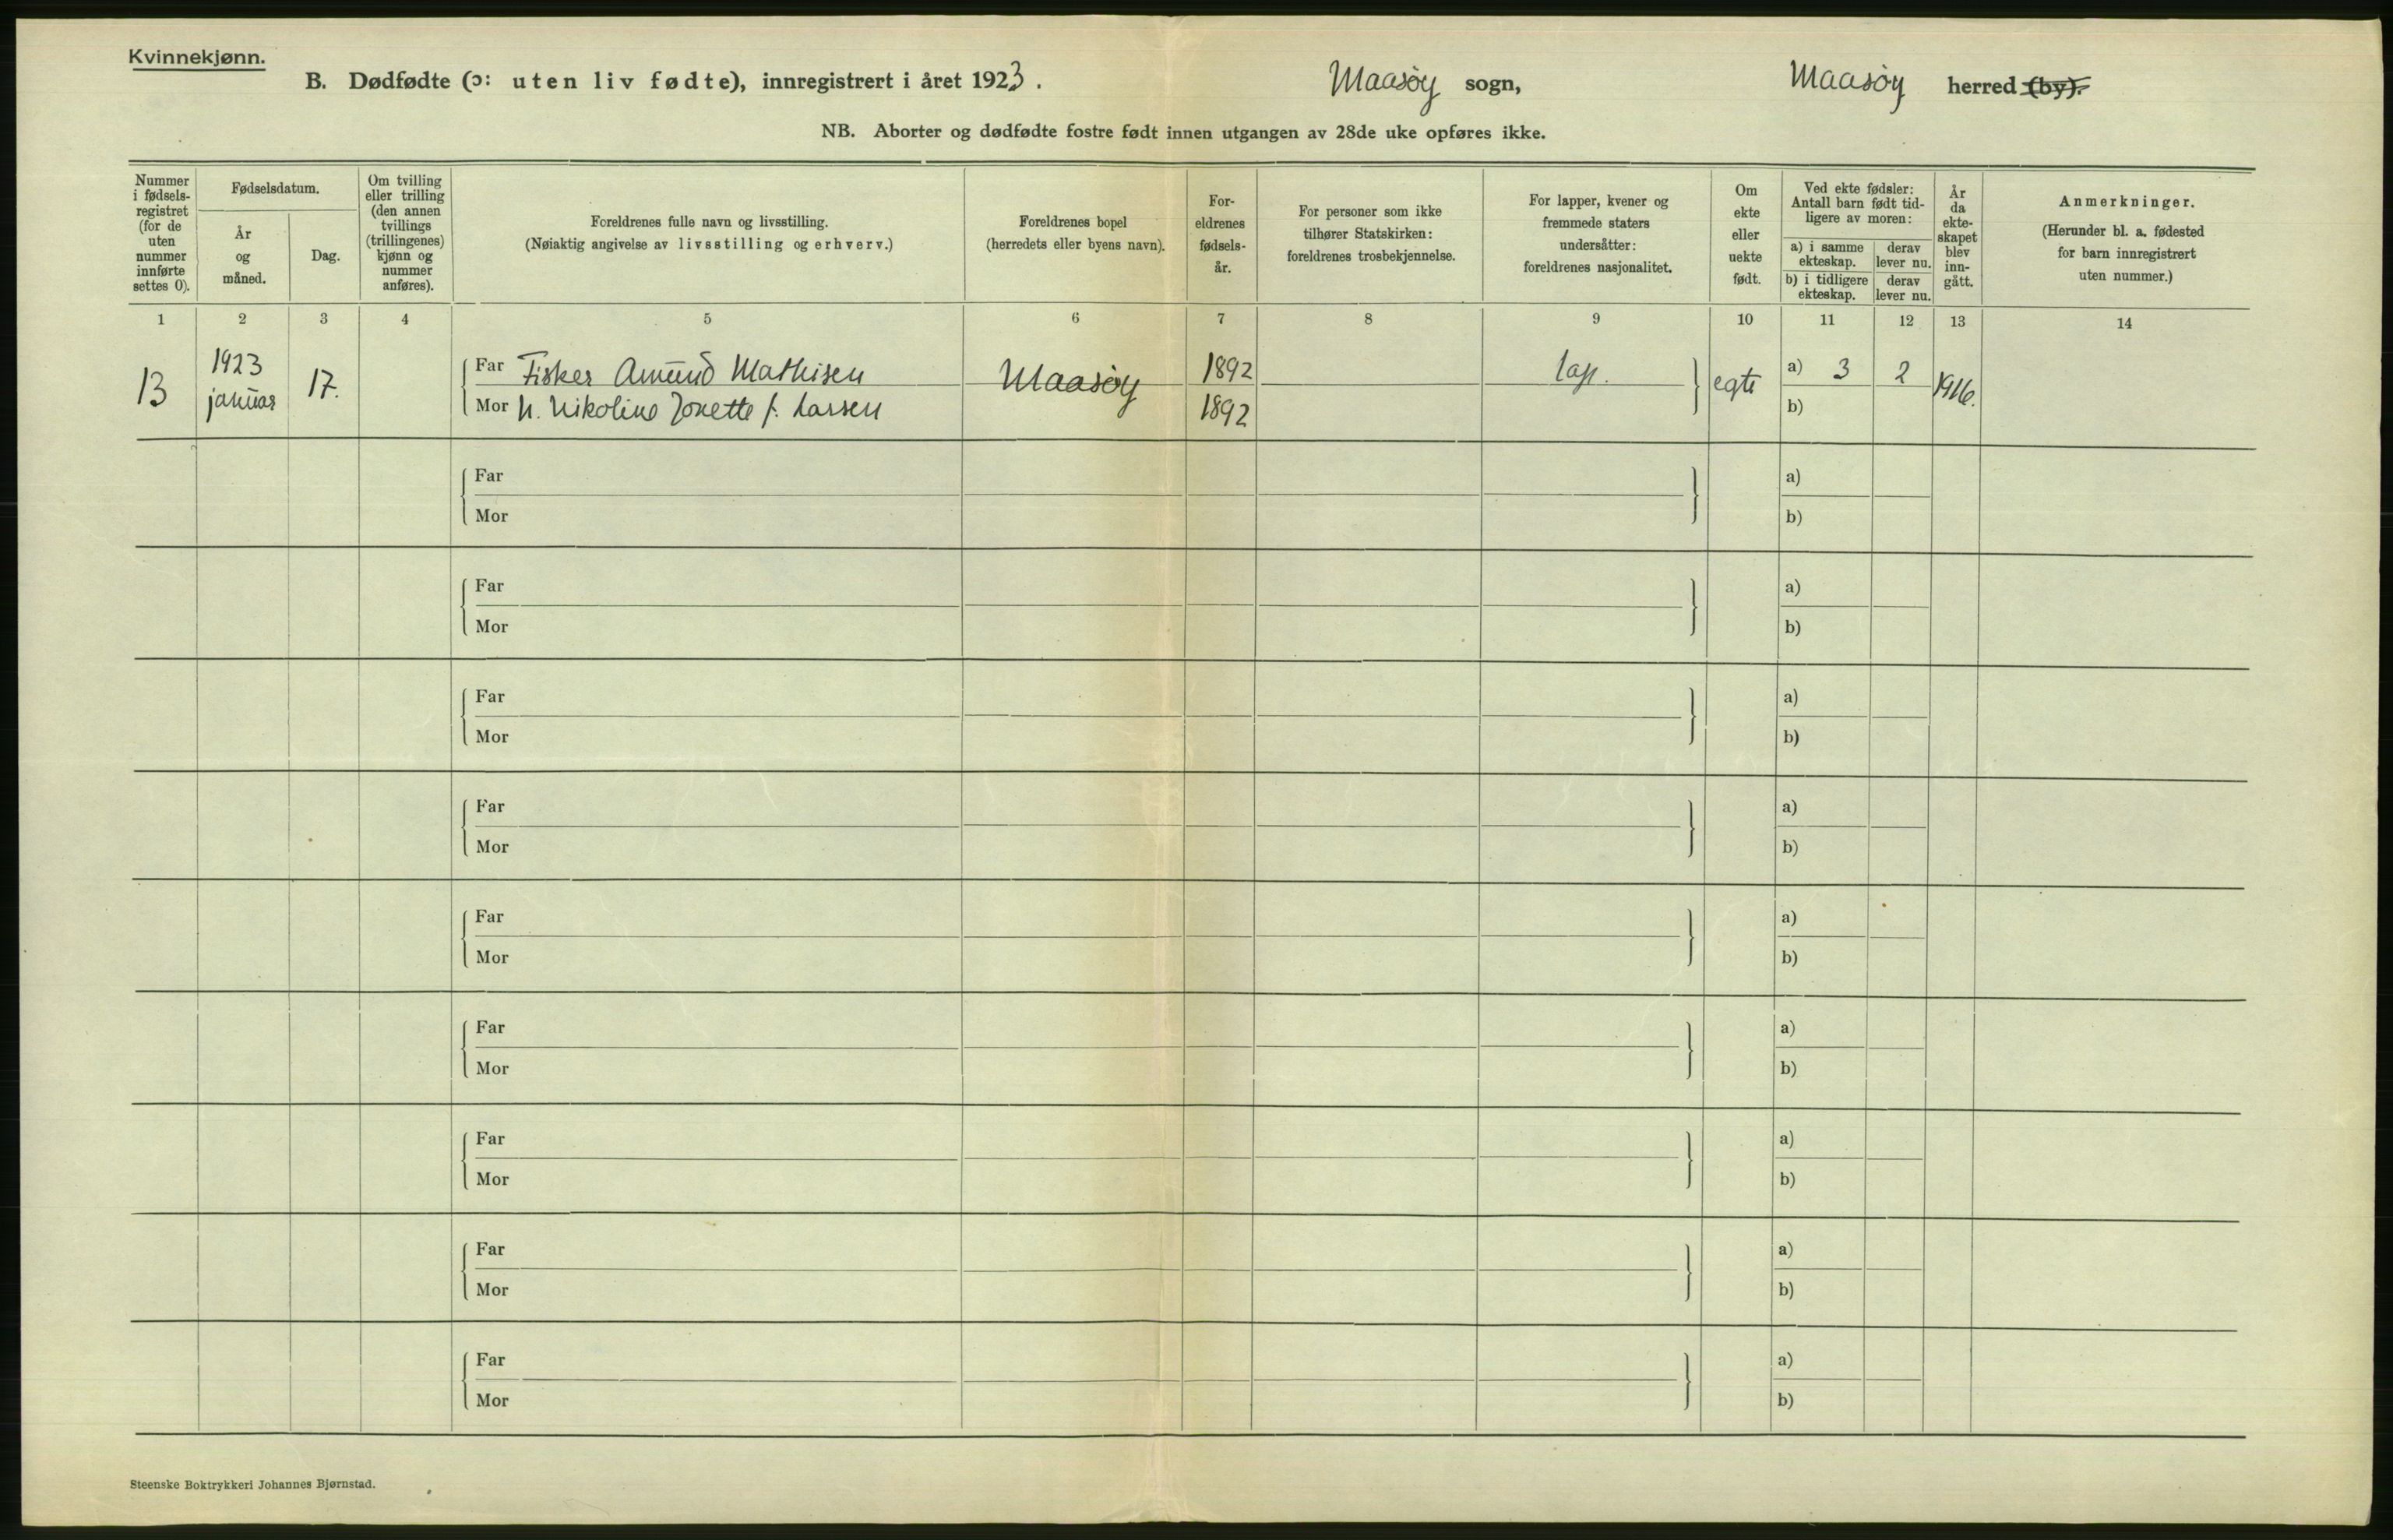 Kvinnekjønn.
B. Dødfødte (ɔ: uten liv fødte), innregistrert i året 1923.
Maasöy sogn,
Maasöy herred (by).
NB. Aborter og dødfødte fostre født innen utgangen av 28de uke opføres ikke.
Nummer
i fødsels-
registret
(for de
uten
nummer
innførte
settes 0).
Fødselsdatum.
År
og
måned.
Dag.
Om tvilling
eller trilling
(den annen
tvillings
(trillingenes)
kjønn og
nummer
anføres).
Foreldrenes fulle navn og livsstilling.
(Nøiaktig angivelse av livsstilling og erhverv.)
Foreldrenes bopel
(herredets eller byens navn).
For-
eldrenes
fødsels-
år.
For personer som ikke
tilhører Statskirken:
foreldrenes trosbekjennelse.
For lapper, kvener og
fremmede staters
undersåtter:
foreldrenes nasjonalitet.
Om
ekte
eller
uekte
født.
Ved ekte fødsler:
Antall barn født tid-
ligere av moren:
a) i samme
ekteskap.
derav
lever nu.
b) i tidligere
ekteskap.
derav
lever nu.
År
da
ekte-
skapet
blev
inn-
gått.
Anmerkninger.
(Herunder bl. a. fødested
for barn innregistrert
uten nummer.)
1 2 3 4 5 6 7 8 9 10 11 12 13 14
13
1923
januar
17.
Far Fisker Amund Mathisen
Mor H. Nikoline Jonette f. Larsen
Maasöy
1892
1892
lap.
egte
a) 3 2
b)
1916.
Far a)
Mor b)
Far a)
Mor b)
Far a)
Mor b)
Far a)
Mor b)
Far a)
Mor b)
Far a)
Mor b)
Far a)
Mor b)
Far a)
Mor b)
Far a)
Mor b)
Steenske Boktrykkeri Johannes Bjørnstad.